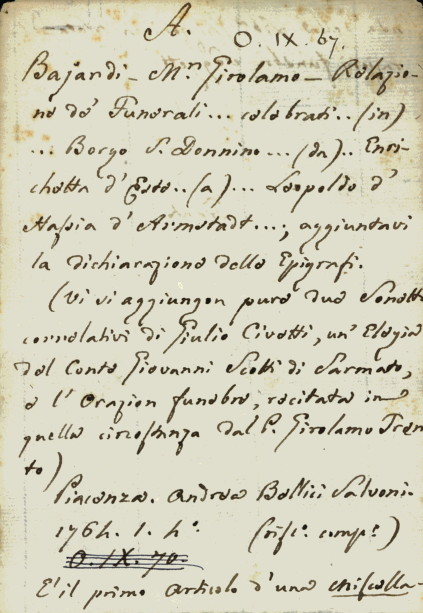 A.
O. IX. 67.
Bajardi - Mr. Girolamo - Relazio-
ne de' Funerali... celebrati.. (in)
... Borgo S. Donnino... (da).. Enri-
chetta d'Este.. (a)... Leopoldo d'
Hassia d'Armstadt...; aggiuntavi
la dichiarazione delle Epigrafi.
(Vi si aggiungon pure due Sonetti
correlativi di Giulio Civetti, un'Elegia
del Conte Giovanni Scotti di Sarmato,
e l'Orazion funebre, recitata in
quella circostanza dal P. Girolamo Tren-
to)
Piacenza. Andrea Bellici Salvoni.
1764. 1. 4°. (risc°. comp°.)
O. IX. 70.
E' il primo articolo d'una miscella-